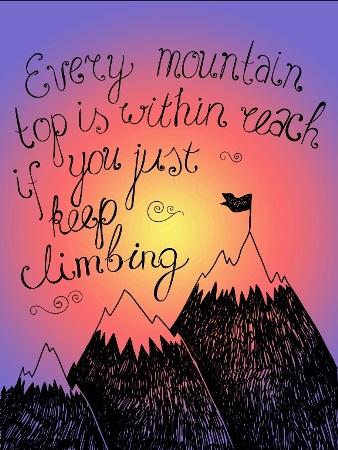 Every mountain
top is within reach
if you just
keep
climbing